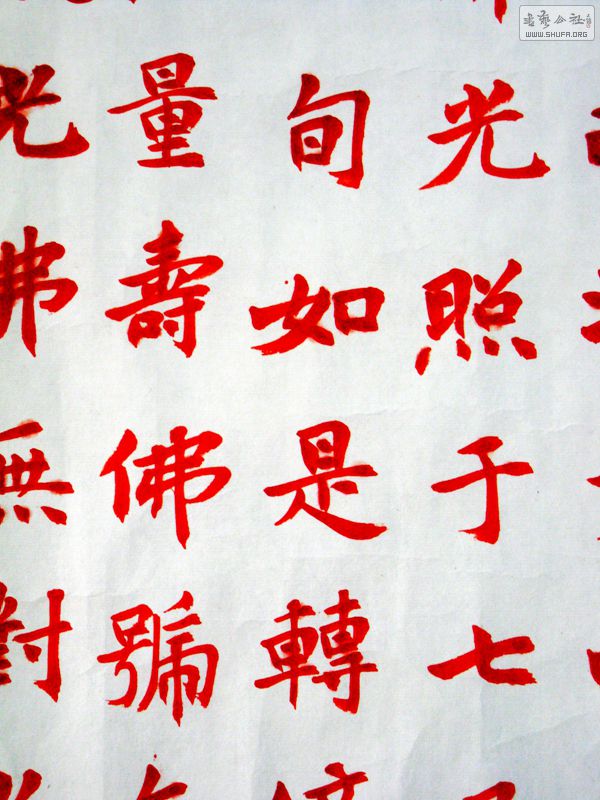 光照于七
旬如是轉
量壽佛號
光佛無對
書藝公社
WWW.SHUFA.ORG